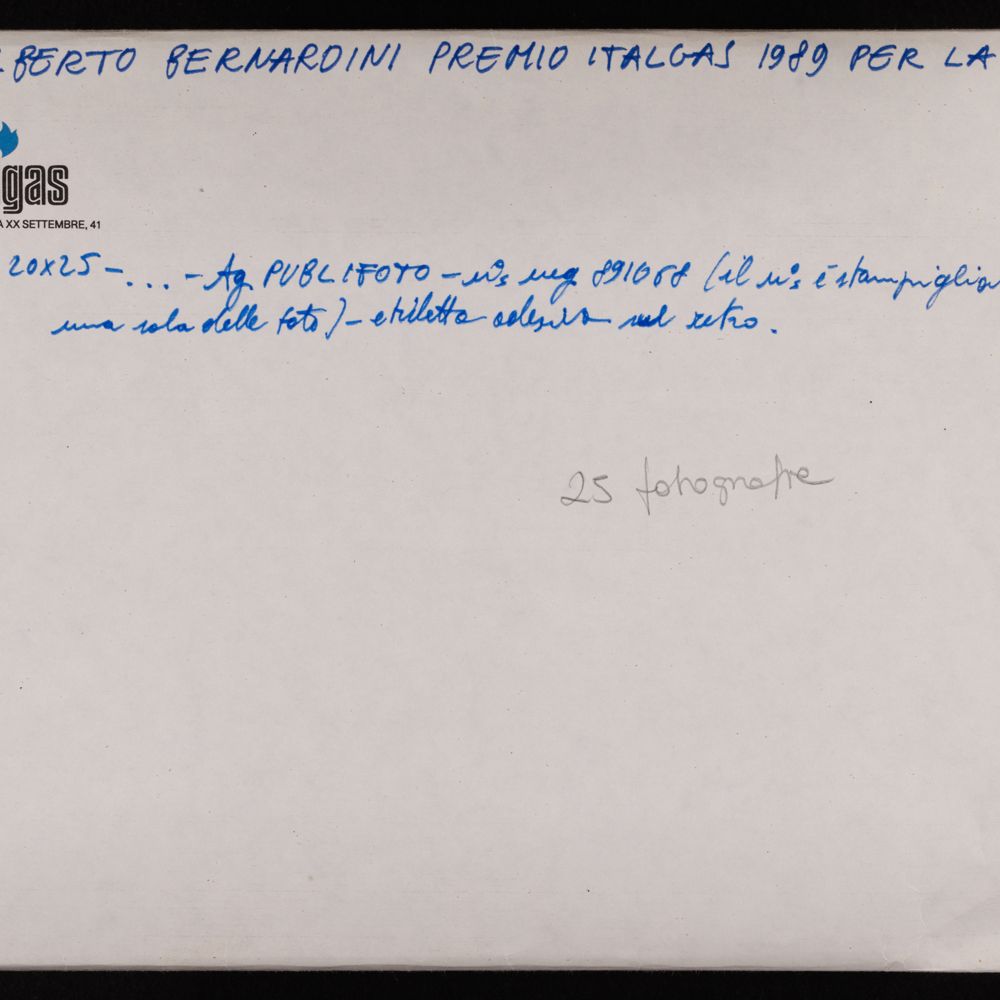 LBERTO BERNARDINI PREMIO ITALGAS 1989 PER LA
gas
A XX SETTEMBRE, 41
20x25 - ... - Ag. PUBLIFOTO - n°s neg 891068 (il n°s è stampiglia
una sola delle foto) - etichetta adesiva sul retro.
25 fotografie